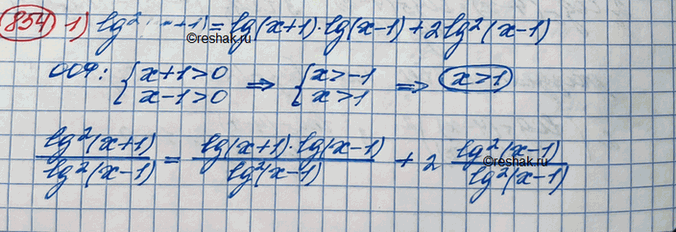 854 1) lg²(x+1) = lg(x+1)·lg(x-1) + 2lg²(x-1)
©reshak.ru
ООУ: { x+1>0 ⇒ { x>-1 ⇒ x>1
x-1>0 x>1
lg²(x+1)/lg²(x-1) = lg(x+1)·lg(x-1)/lg²(x-1) + 2 lg²(x-1)/lg²(x-1)
©reshak.ru